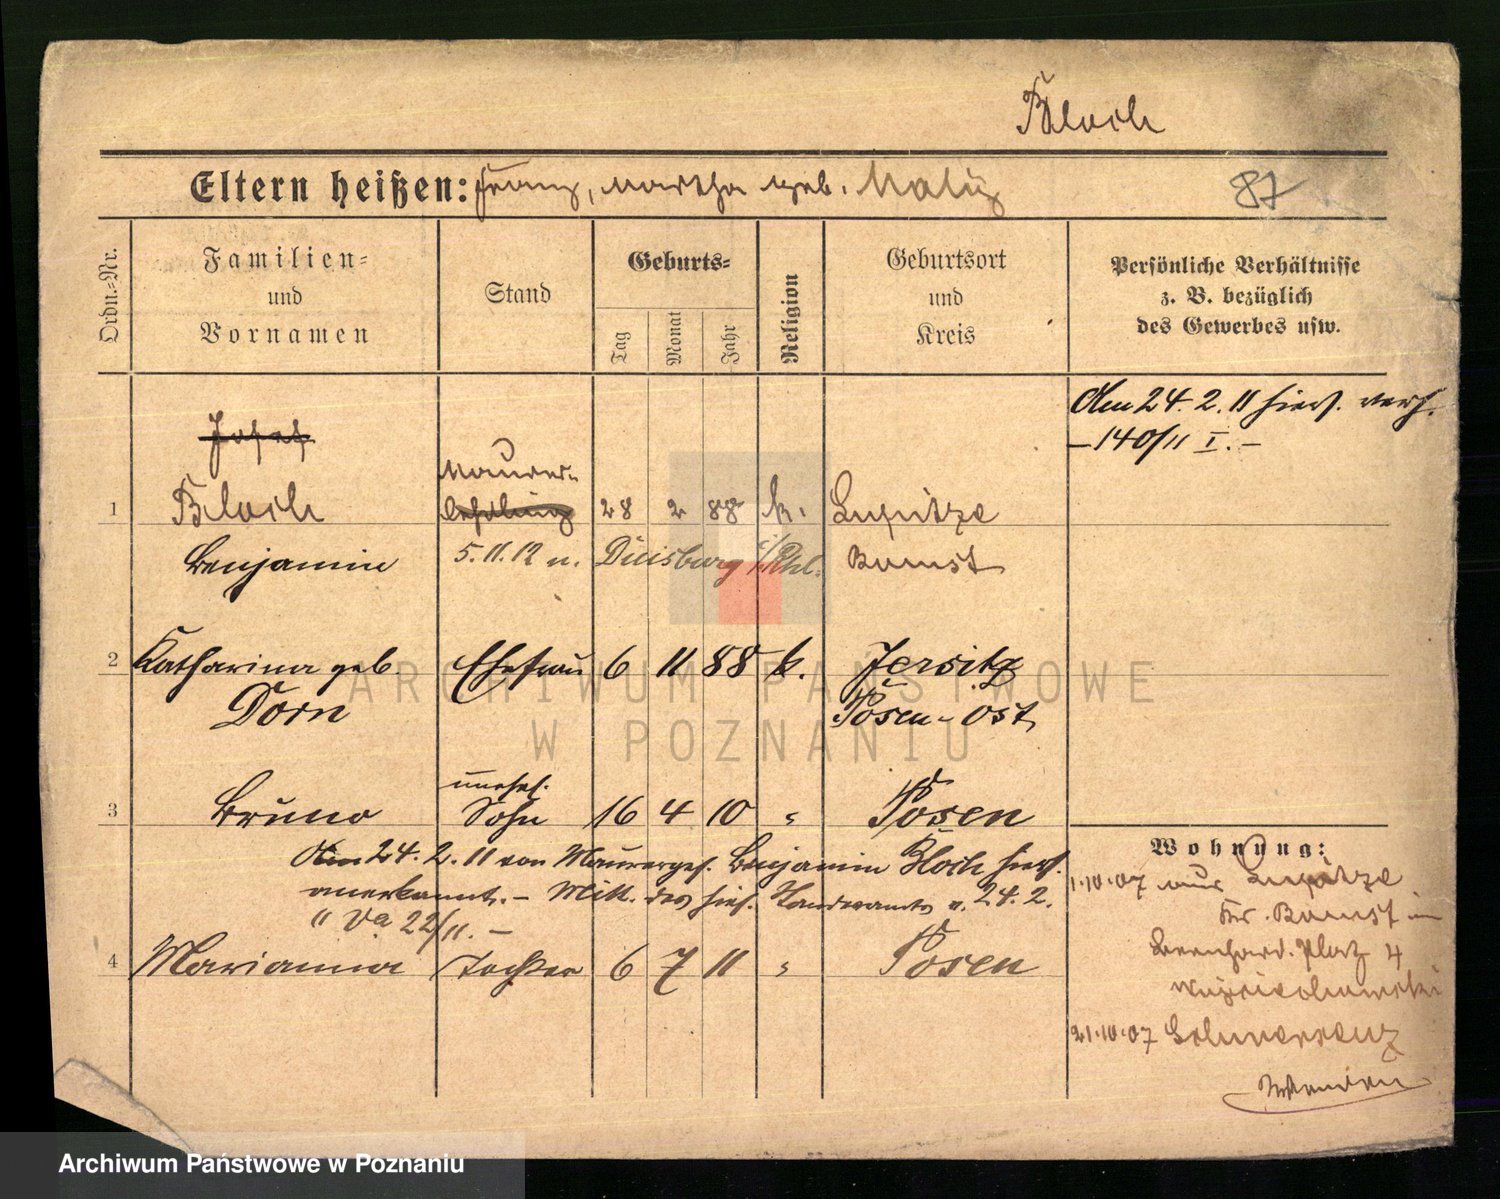 Bloch
Eltern heißen: Franz, Martha geb.
87
Ordn.-Nr.
Familien-
und
Vornamen
Stand
Geburts-
Tag
Monat
Jahr
Religion
Geburtsort
und
Kreis
Persönliche Verhältnisse
z. B. bezüglich
des Gewerbes usw.
Am 24. 2. 11 hier verh.
– 140/11 I. –
Josef
Maurer-
1 Bloch Lehrling 28 2 88 k.
Benjamin 5. 11. 12 n. Duisburg Bomst
2 Katharina geb. Ehefrau 6 11 88 k. Jersitz
Dorn Posen-Ost
unehel.
3 Bruno Sohn 16 4 10 " Posen
Am 24. 2. 11 von Maurerges. Benjamin Bloch hier
anerkannt. – Mitt. des hies. Standesamts v. 24. 2.
11 Va 22/11. –
4 Marianna Tochter 6 7 11 " Posen
Wohnung:
1.10.07 aus
Kr. Bomst
Bernhard. Platz 4
21.10.07
ARCHIWUM PAŃSTWOWE
W POZNANIU
Archiwum Państwowe w Poznaniu